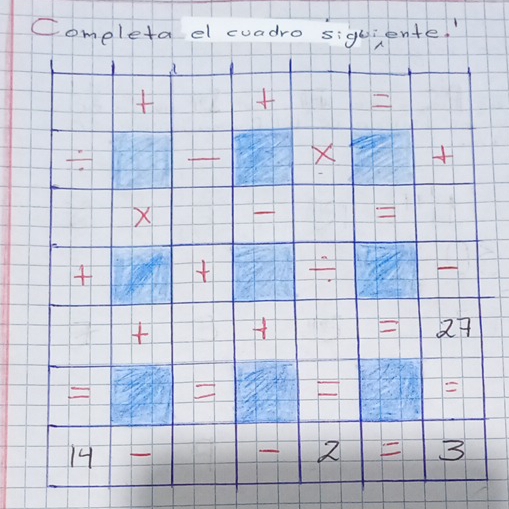 Completa el cuadro siguiente.'
+ + =
÷ − × +
× − =
+ + ÷ −
+ + = 27
= = = =
14 − − 2 = 3